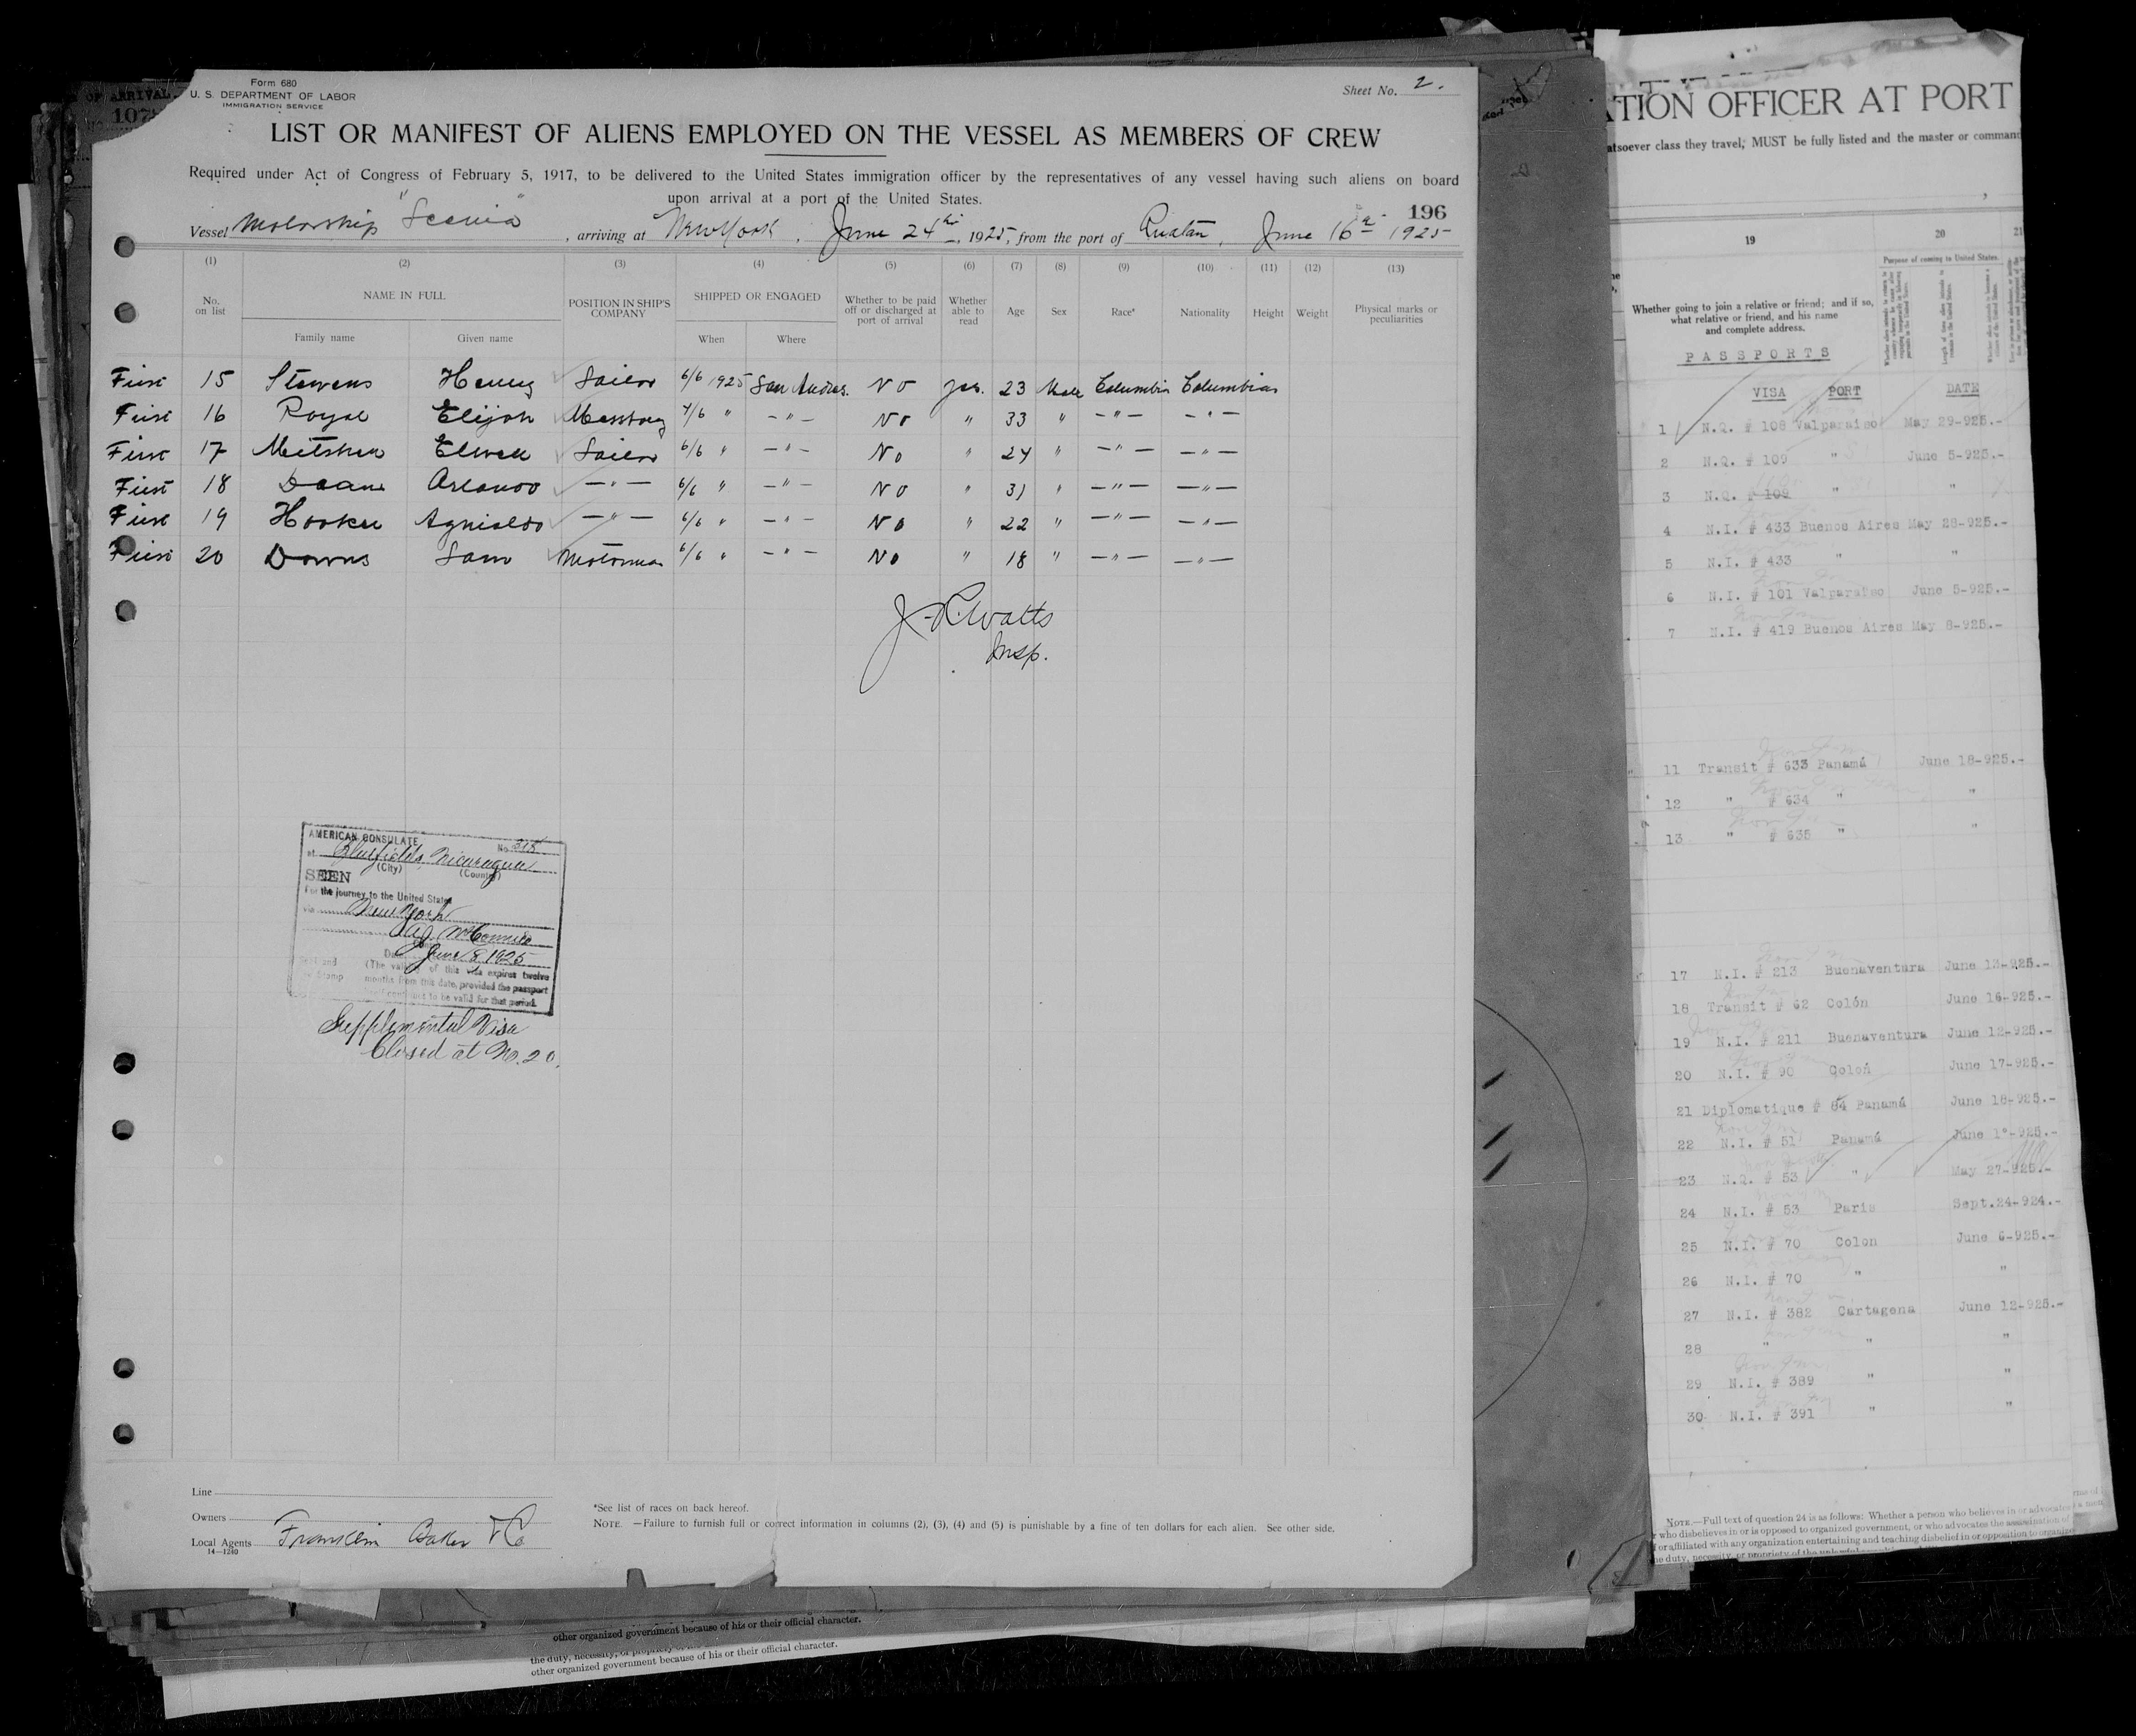 OF ARRIVAL
107
Form 680
U. S. DEPARTMENT OF LABOR
IMMIGRATION SERVICE
Sheet No. 2.
LIST OR MANIFEST OF ALIENS EMPLOYED ON THE VESSEL AS MEMBERS OF CREW
Required under Act of Congress of February 5, 1917, to be delivered to the United States immigration officer by the representatives of any vessel having such aliens on board
upon arrival at a port of the United States.
196
Vessel Motorship , arriving at New York , June 24th, 1925, from the port of Ruatan, June 16th 1925
(1) (2) (3) (4) (5) (6) (7) (8) (9) (10) (11) (12) (13)
No. on list NAME IN FULL POSITION IN SHIP'S COMPANY SHIPPED OR ENGAGED Whether to be paid off or discharged at port of arrival Whether able to read Age Sex Race* Nationality Height Weight Physical marks or peculiarities
Family name Given name When Where
First 15 Stevens Henry Sailor 6/6 1925 San Andres. No yes. 23 Male Columbia Columbian
First 16 Elijah Messboy 4/6 " — " — No " 33 " — " — — " —
First 17 Sailor 6/6 " — " — No " 24 " — " — — " —
First 18 — " — 6/6 " — " — No " 31 " — " — — " —
First 19 Hooker — " — 6/6 " — " — No " 22 " — " — — " —
First 20 Downs Sam Motorman 6/6 " — " — No " 18 " — " — — " —
J. R. Watts
Insp.
AMERICAN CONSULATE
No. 315
at Bluefields, Nicaragua
(City) (Country)
SEEN
For the journey to the United States
via New York
Date June 8 1925
(The validity of this visa expires twelve
months from this date, provided the passport
continues to be valid for that period.
Supplemental Visa
Closed at No. 20.
Line
Owners
Local Agents Franklin Baker & Co
14—1240
*See list of races on back hereof.
NOTE.—Failure to furnish full or correct information in columns (2), (3), (4) and (5) is punishable by a fine of ten dollars for each alien. See other side.
other organized government because of his or their official character.
other organized government because of his or their official character.
ATION OFFICER AT PORT
atsoever class they travel, MUST be fully listed and the master or comman
19 20 21
Purpose of coming to United States.
Whether going to join a relative or friend; and if so,
what relative or friend, and his name
and complete address.
PASSPORTS
VISA PORT DATE
1 N.Q. # 108 Valparaiso May 29-925.-
2 N.Q. # 109 " June 5-925.-
3 N.Q. # 109 " "
4 N.I. # 433 Buenos Aires May 28-925.-
5 N.I. # 433 " "
6 N.I. # 101 Valparaiso June 5-925.-
7 N.I. # 419 Buenos Aires May 8-925.-
11 Transit # 633 Panamá June 18-925.-
12 " # 634 " "
13 " # 635 " "
17 N.I. # 213 Buenaventura June 13-925.-
18 Transit # 62 Colón June 16-925.-
19 N.I. # 211 Buenaventura June 12-925.-
20 N.I. # 90 Colón June 17-925.-
21 Diplomatique # 84 Panamá June 18-925.-
22 N.I. # 51 Panamá June 1°-925.-
23 N.Q. # 53 " May 27-925.-
24 N.I. # 53 Paris Sept.24-924.-
25 N.I. # 70 Colon June 6-925.-
26 N.I. # 70 " "
27 N.I. # 382 Cartagena June 12-925.-
28 " " "
29 N.I. # 389 " "
30 N.I. # 391 " "
NOTE.—Full text of question 24 is as follows: Whether a person who believes in or advocates
who disbelieves in or is opposed to organized government, or who advocates the assassination of
or affiliated with any organization entertaining and teaching disbelief in or opposition to organize